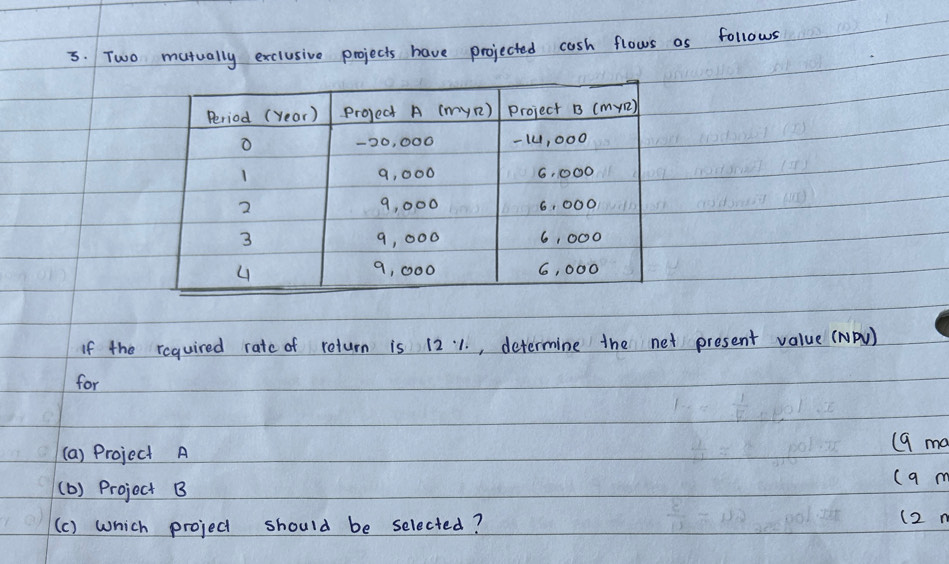 3. Two mutually exclusive projects have projected cash flows as follows
Period (Year) Project A (MYR) Project B (MYR)
0 -20,000 -14,000
1 9,000 6,000
2 9,000 6,000
3 9,000 6,000
4 9,000 6,000
If the required rate of return is 12%, determine the net present value (NPV)
for
(a) Project A (9 ma
(b) Project B (9 m
(c) Which project should be selected? (2 m